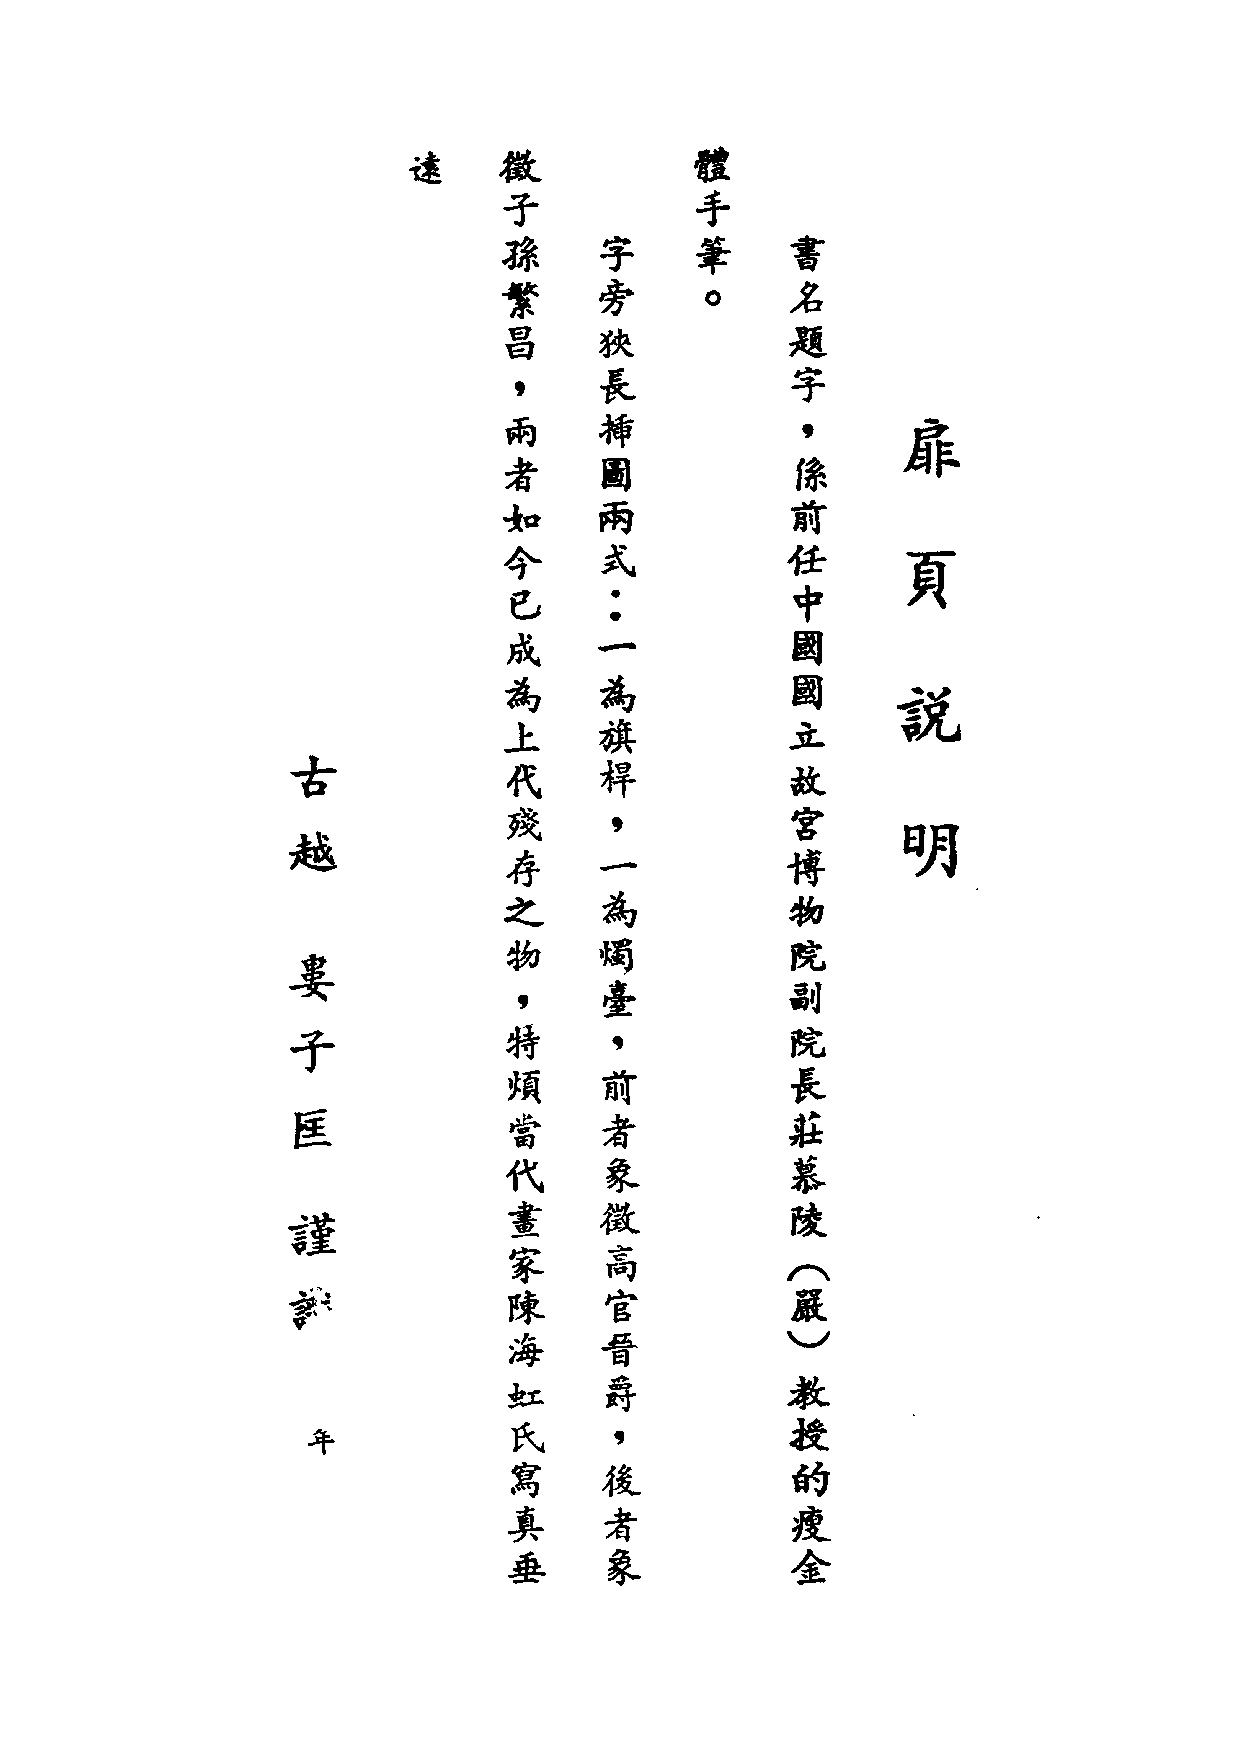 扉頁説明
書名題字，係前任中國國立故宮博物院副院長莊慕陵（嚴）教授的瘦金
體手筆。
字旁狹長揷圖兩式：一為旗桿，一為燭臺，前者象徵高官晉爵，後者象
徵子孫繁昌，兩者如今已成為上代殘存之物，特煩當代畫家陳海虹氏寫真垂
遠
古越 婁子匡 謹 年